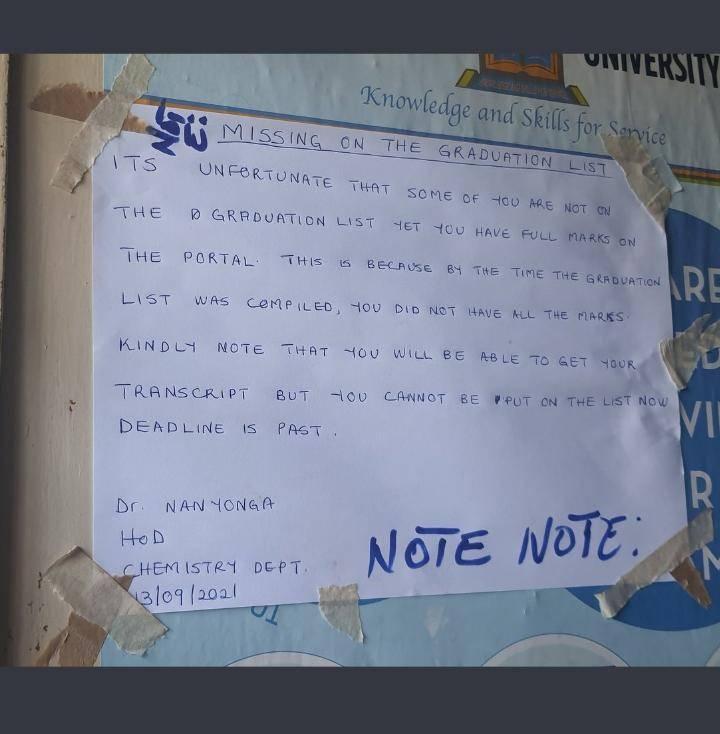 UNIVERSITY
Knowledge and Skills for Service
MISSING ON THE GRADUATION LIST
ITS UNFORTUNATE THAT SOME OF YOU ARE NOT ON
THE GRADUATION LIST YET YOU HAVE FULL MARKS ON
THE PORTAL. THIS IS BECAUSE BY THE TIME THE GRADUATION
LIST WAS COMPILED, YOU DID NOT HAVE ALL THE MARKS.
KINDLY NOTE THAT YOU WILL BE ABLE TO GET YOUR
TRANSCRIPT BUT YOU CANNOT BE PUT ON THE LIST NOW
DEADLINE IS PAST.
Dr. NANYONGA
HoD
CHEMISTRY DEPT.
13/09/2021
NOTE NOTE: